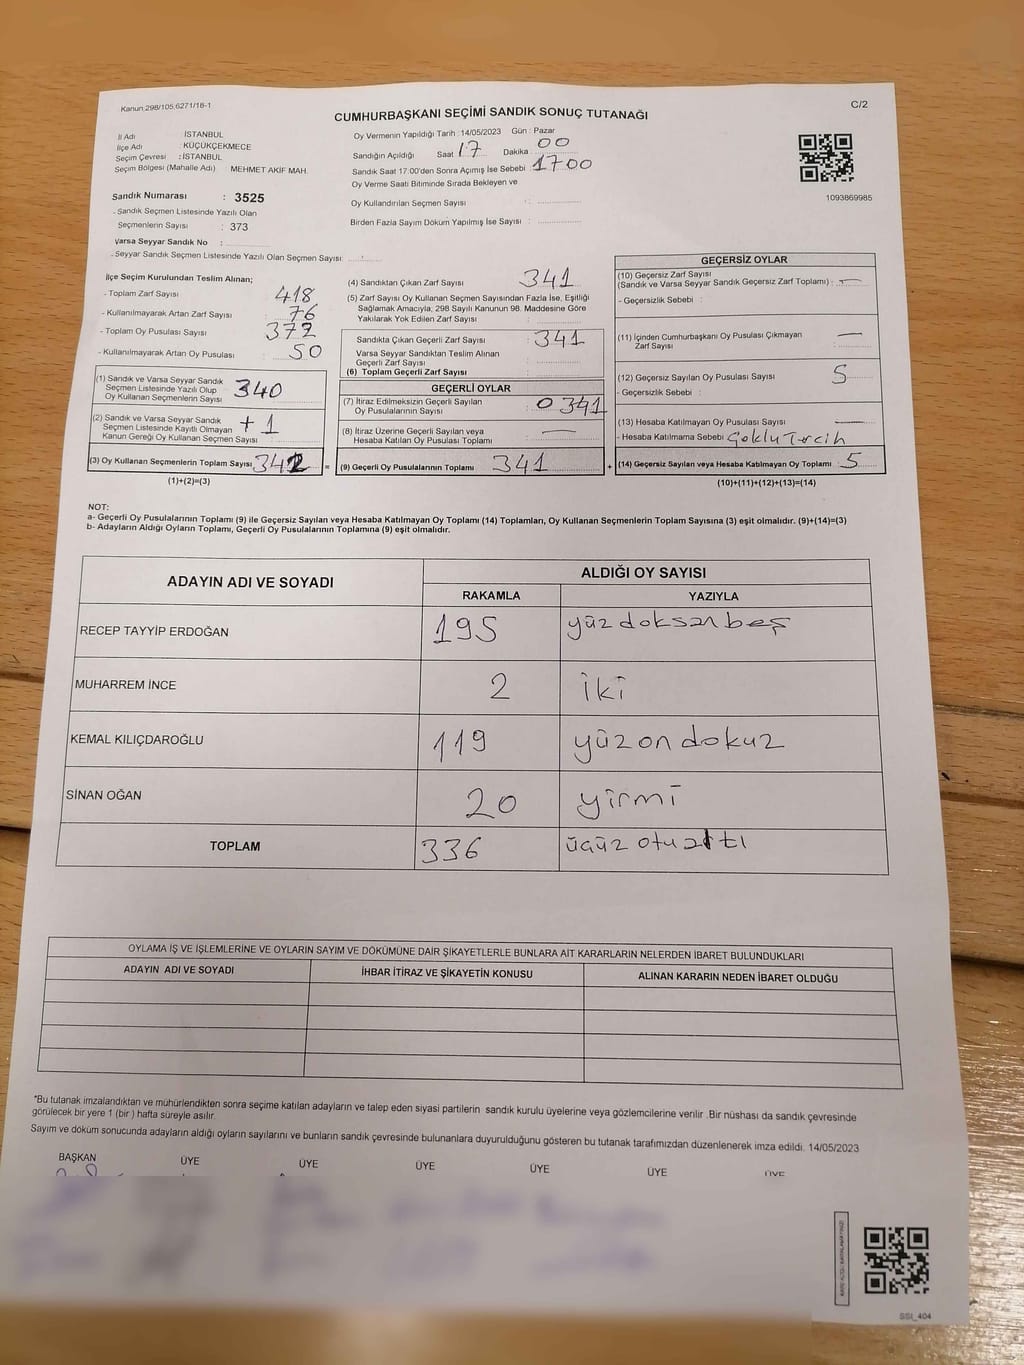 Kanun 298/105,6271/18-1
C/2
CUMHURBAŞKANI SEÇİMİ SANDIK SONUÇ TUTANAĞI
İl Adı : İSTANBUL
İlçe Adı : KÜÇÜKÇEKMECE
Seçim Çevresi : İSTANBUL
Seçim Bölgesi (Mahalle Adı) MEHMET AKİF MAH.
Oy Vermenin Yapıldığı Tarih :14/05/2023 Gün : Pazar
Sandığın Açıldığı Saat 17 Dakika 00
Sandık Saat 17:00'den Sonra Açımış İse Sebebi : 1700
Oy Verme Saati Bitiminde Sırada Bekleyen ve
Oy Kullandırılan Seçmen Sayısı :
Birden Fazla Sayım Döküm Yapılmış İse Sayısı :
1093869985
Sandık Numarası : 3525
- Sandık Seçmen Listesinde Yazılı Olan
Seçmenlerin Sayısı : 373
Varsa Seyyar Sandık No :
- Seyyar Sandık Seçmen Listesinde Yazılı Olan Seçmen Sayısı: :
İlçe Seçim Kurulundan Teslim Alınan;
- Toplam Zarf Sayısı : 418
- Kullanılmayarak Artan Zarf Sayısı : 76
- Toplam Oy Pusulası Sayısı : 372
- Kullanılmayarak Artan Oy Pusulası : 50
(1) Sandık ve Varsa Seyyar Sandık
Seçmen Listesinde Yazılı Olup
Oy Kullanan Seçmenlerin Sayısı : 340
(2) Sandık ve Varsa Seyyar Sandık
Seçmen Listesinde Kayıtlı Olmayan
Kanun Gereği Oy Kullanan Seçmen Sayısı : + 1
(3) Oy Kullanan Seçmenlerin Toplam Sayısı : 342 =
(1)+(2)=(3)
(4) Sandıktan Çıkan Zarf Sayısı : 341
(5) Zarf Sayısı Oy Kullanan Seçmen Sayısından Fazla İse, Eşitliği
Sağlamak Amacıyla; 298 Sayılı Kanunun 98. Maddesine Göre
Yakılarak Yok Edilen Zarf Sayısı :
Sandıkta Çıkan Geçerli Zarf Sayısı : 341
Varsa Seyyar Sandıktan Teslim Alınan
Geçerli Zarf Sayısı :
(6) Toplam Geçerli Zarf Sayısı :
GEÇERLİ OYLAR
(7) İtiraz Edilmeksizin Geçerli Sayılan
Oy Pusulalarının Sayısı : 0 341
(8) İtiraz Üzerine Geçerli Sayılan veya
Hesaba Katılan Oy Pusulası Toplamı : —
(9) Geçerli Oy Pusulalarının Toplamı : 341 +
GEÇERSİZ OYLAR
(10) Geçersiz Zarf Sayısı
(Sandık ve Varsa Seyyar Sandık Geçersiz Zarf Toplamı) : —
- Geçersizlik Sebebi :
(11) İçinden Cumhurbaşkanı Oy Pusulası Çıkmayan
Zarf Sayısı : —
(12) Geçersiz Sayılan Oy Pusulası Sayısı : 5
- Geçersizlik Sebebi :
(13) Hesaba Katılmayan Oy Pusulası Sayısı : —
- Hesaba Katılmama Sebebi : Çoklu Tercih
(14) Geçersiz Sayılan veya Hesaba Katılmayan Oy Toplamı : 5
(10)+(11)+(12)+(13)=(14)
NOT:
a- Geçerli Oy Pusulalarının Toplamı (9) ile Geçersiz Sayılan veya Hesaba Katılmayan Oy Toplamı (14) Toplamları, Oy Kullanan Seçmenlerin Toplam Sayısına (3) eşit olmalıdır. (9)+(14)=(3)
b- Adayların Aldığı Oyların Toplamı, Geçerli Oy Pusulalarının Toplamına (9) eşit olmalıdır.
ADAYIN ADI VE SOYADI
ALDIĞI OY SAYISI
RAKAMLA YAZIYLA
RECEP TAYYİP ERDOĞAN 195 yüz doksan beş
MUHARREM İNCE 2 iki
KEMAL KILIÇDAROĞLU 119 yüz on dokuz
SİNAN OĞAN 20 yirmi
TOPLAM 336
OYLAMA İŞ VE İŞLEMLERİNE VE OYLARIN SAYIM VE DÖKÜMÜNE DAİR ŞİKAYETLERLE BUNLARA AİT KARARLARIN NELERDEN İBARET BULUNDUKLARI
ADAYIN ADI VE SOYADI İHBAR İTİRAZ VE ŞİKAYETİN KONUSU ALINAN KARARIN NEDEN İBARET OLDUĞU
*Bu tutanak imzalandıktan ve mühürlendikten sonra seçime katılan adayların ve talep eden siyasi partilerin sandık kurulu üyelerine veya gözlemcilerine verilir .Bir nüshası da sandık çevresinde
görülecek bir yere 1 (bir ) hafta süreyle asılır.
Sayım ve döküm sonucunda adayların aldığı oyların sayılarını ve bunların sandık çevresinde bulunanlara duyurulduğunu gösteren bu tutanak tarafımızdan düzenlenerek imza edildi. 14/05/2023
BAŞKAN ÜYE ÜYE ÜYE ÜYE ÜYE ÜYE
SSI_404